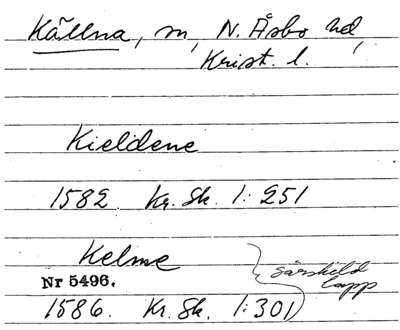 Källna, sn, N. Åsbo hd,
Krist. l.
Kieldene
1582 Kr. Sk. 1:251
Kelme
särskild
lapp
Nr 5496.
1586. Kr. Sk. 1:301